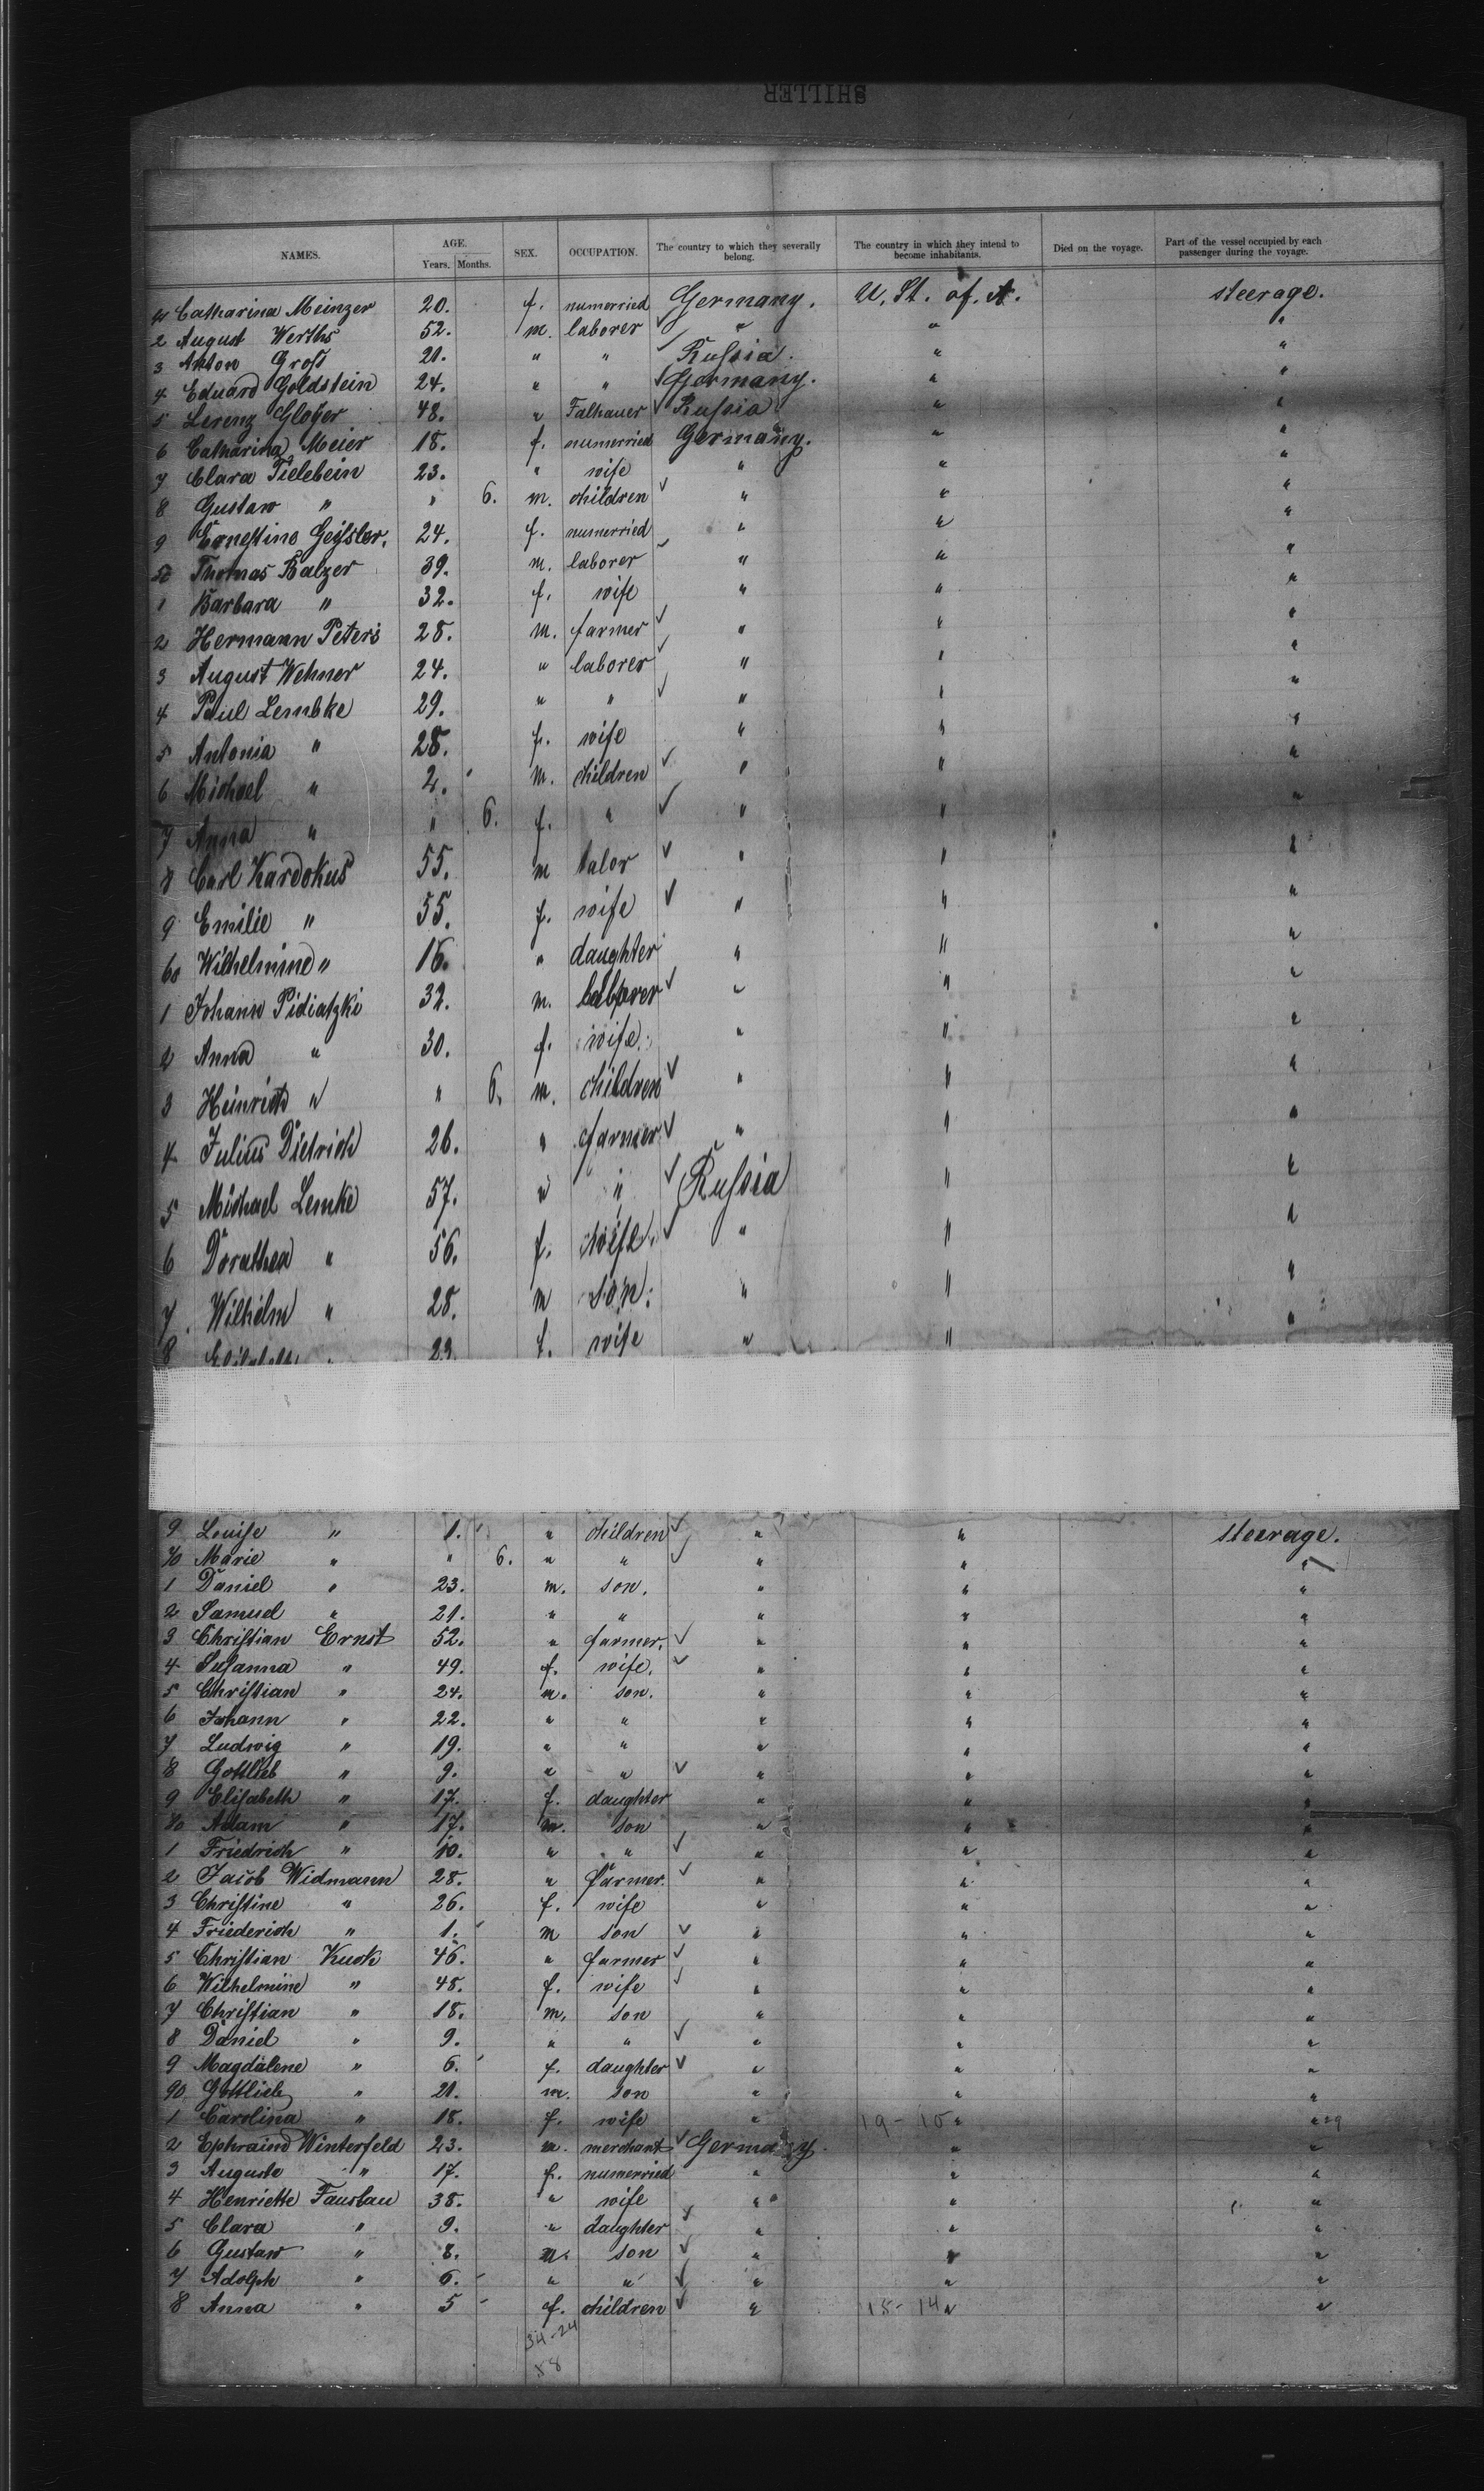 SHILLER
NAMES. AGE. Years. Months. SEX. OCCUPATION. The country to which they severally belong. The country in which they intend to become inhabitants. Died on the voyage. Part of the vessel occupied by each passenger during the voyage.
Catharina Meinzer 20. f. numerried Germany. U. St. of. A. steerage.
2 August Werths 52. m. laborer " " "
3 Anton Groß 21. " " Rußsia. " "
4 Eduard Goldstein 24. " " Germany. " "
5 Lerenz Gloger 48. " Falhauer Rußsia " "
6 Catharina Meier 18. f. numerried Germany. " "
7 Clara Tielebein 23. " wife " " "
8 Gustaw " " 6. m. children " " "
9 Ernestine Geißler. 24. f. numerried " " "
50 Thomas Balzer 39. m. laborer " " "
1 Barbara " 32. f. wife " " "
2 Hermann Peters 28. m. farmer " " "
3 August Wehner 24. " laborer " " "
4 Paul Lembke 29. " " " " "
5 Antonia " 28. f. wife " " "
6 Michael " 2. m. children " " "
7 Anna " " 6. f. " " " "
8 Carl Kardokus 55. m talor " " "
9 Emilie " 55. f. wife " " "
60 Wilhelmine " 16. " daughter " " "
1 Johann Pidiatzki 32. m. laborer " " "
2 Anna " 30. f. wife. " " "
3 Heinrich " " 6. m. children " " "
4 Julius Dietrich 26. " farmer " " "
5 Michael Lemke 57. " " Rußsia " "
6 Dorathea " 56. f. wife. " " "
7 Wilhelm " 28. m son. " " "
8 23. f. wife " "
9 Louise " 1. " children " " steerage.
70 Marie " " 6. " " " " "
1 Daniel " 23. m. son. " " "
2 Samuel " 21. " " " " "
3 Christian Ernst 52. " farmer. " " "
4 Susanna " 49. f. wife. " " "
5 Christian " 24. m. son. " " "
6 Johann " 22. " " " " "
7 Ludwig " 19. " " " " "
8 Gottlieb " 9. " " " " "
9 Elisabeth " 17. f. daughter " " "
80 Adam " 17. m. son " " "
1 Friedrich " 10. " " " " "
2 Jacob Widmann 28. " farmer. " " "
3 Christine " 26. f. wife " " "
4 Friederich " 1. m son " " "
5 Christian Kusk 46. " farmer " " "
6 Wilhelmine " 48. f. wife " " "
7 Christian " 18. m. son " " "
8 Daniel " 9. " " " " "
9 Magdalene " 6. f. daughter " " "
90 Gottlieb " 21. m. son " " "
1 Carolina " 18. f. wife " 19-10 " "
2 Ephraim Winterfeld 23. m. merchant Germany " "
3 Auguste " 17. f. numerried " " "
4 Henriette Faustau 38. " wife " " "
5 Clara " 9. " daughter " " "
6 Gustaw " 8. m. son " " "
7 Adolph " 6. " " " " "
8 Anna " 5 f. children " 15-14 " "
34-24
58